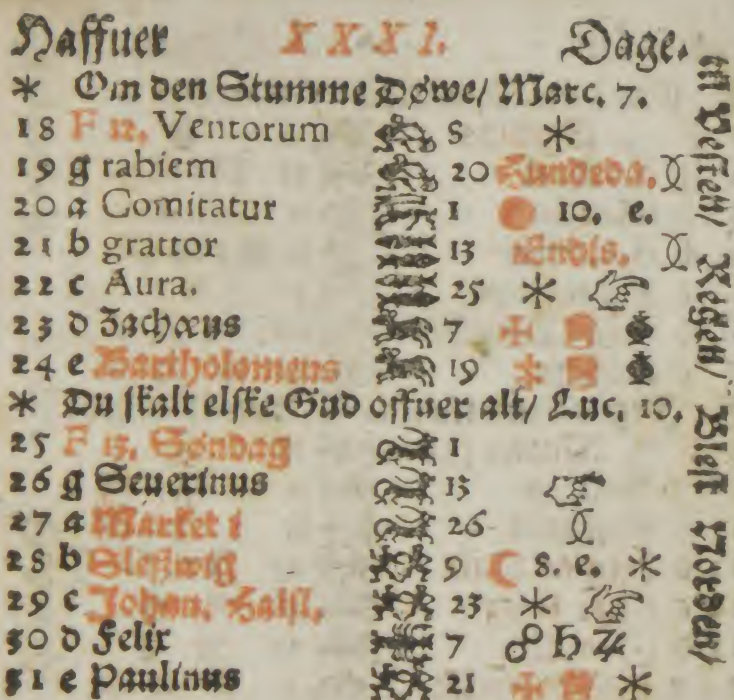 Haffuer XXXI. Dage.
* Om den Stumme Døwe/ Marc. 7.
18 F 12. Ventorum 8 *
19 g rabiem 20 Hundeda.
20 a Comitatur 1 10. e.
21 b grattor 13 Endis.
22 c Aura. 25 * ☞
23 d Zachæus 7 ✠
24 e Bartholomeus 19 *
* Du skalt elske Gud offuer alt/ Luc. 10.
25 F 13. Søndag 1
26 g Seuerinus 13 ☞
27 a Market i 26
28 b Sleßwig 9 ☾ 8. e. *
29 c Johan. Halsl. 23 * ☞
30 d Felix 7 ☍ ♄ ♃
31 e Paulinus 21 ✠ *
Vesten/ Regen/ Blest Norden/